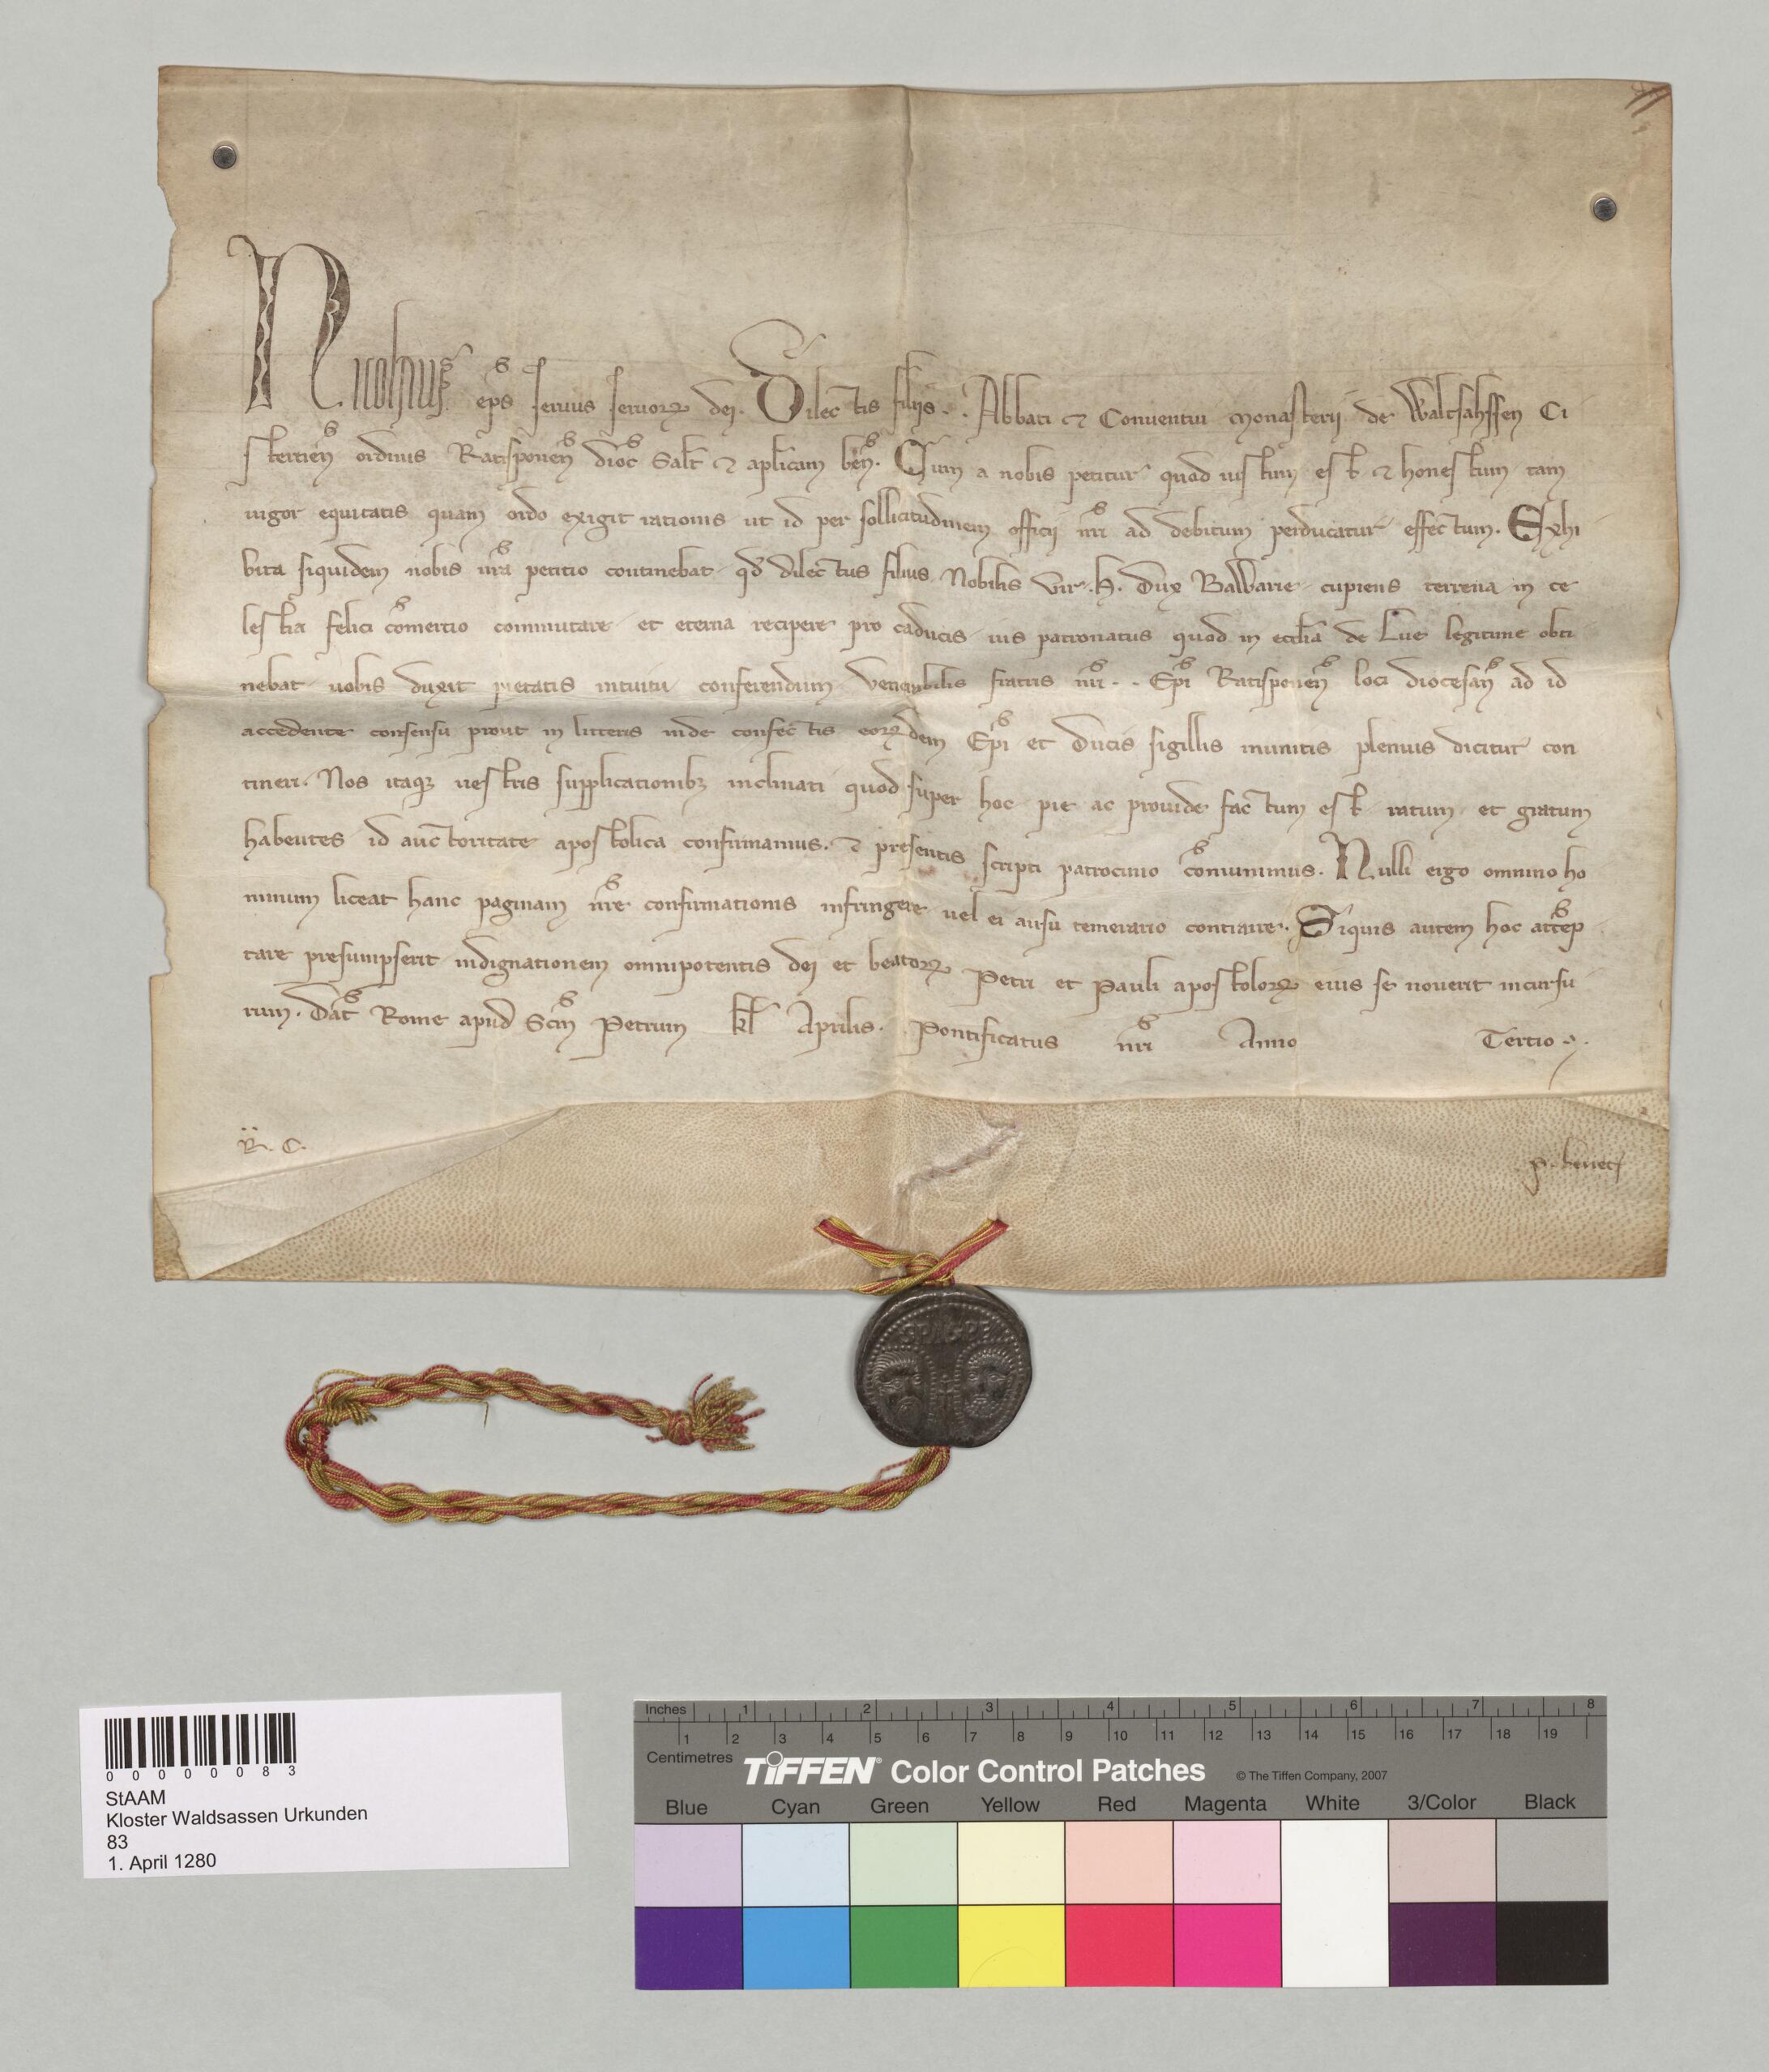 Nicolaus eps seruus seruorꝝ dei. Dilectis filijs . . Abbati et Conuentui Monasterij de Waltsahssen Ci
stercien ordinis Ratisponen dioc Salt et aplicam ben. Cum a nobis petitur quod iustum est et honestum tam
uigor equitatis quam ordo exigit rationis ut id per sollicitudinem officij nri ad debitum perducatur effectum. Exhi
bita siquidem nobis ura petitio continebat qd dilectus filius Nobilis Vir . H. Dux Bawarie cupiens terrena in ce
lestia felici comercio commutare et eterna recipere pro caducis ius patronatus quod in ecclia de Lue legitime obti
nebat uobis duxit pietatis intuitu conferendum venerabilis fratris nri . . Epi Ratisponen loci diocesan ad id
accedente consensu prout in litteris inde confectis eorꝝdem Epi et Ducis sigillis munitis plenius dicitur con
tineri. Nos itaqꝫ uestris supplicationibꝫ inclinati quod super hoc pie ac prouide factum est ratum et gratum
habentes id auctoritate apostolica confirmamus. et presentis scripti patrocinio comunimus. Nulli ergo omnino ho
minum liceat hanc paginam nre confirmationis infringere uel ei ausu temerario contraire. Siquis autem hoc attep
tare presumpserit indignationem omnipotentis dei et beatorꝝ Petri et Pauli apostolorꝝ eius se nouerit incursu
rum. Dat Rome apud Scm Petrum kl Aprilis. Pontificatus nri Anno Tertio . .
R. C.
SPASPE
0 0 0 0 0 8 3
StAAM
Kloster Waldsassen Urkunden
83
1. April 1280
Inches 1 2 3 4 5 6 7 8
1 2 3 4 5 6 7 8 9 10 11 12 13 14 15 16 17 18 19
Centimetres
TIFFEN® Color Control Patches © The Tiffen Company, 2007
Blue Cyan Green Yellow Red Magenta White 3/Color Black